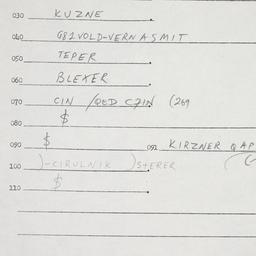 030 KUZNE
040 G82VOLD-VERNASMIT
050 TEPER
060 BLEXER
070 CIN /QED CZIN (269
080 $
090 $ 091 KIRZNER QAP
100 )-CIRULNIK )STERER
110 $